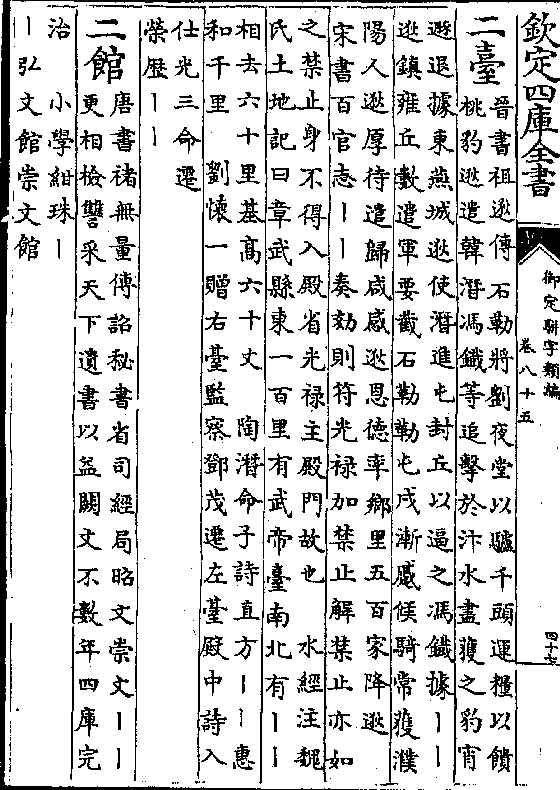 欽定四庫全書
御定駢字類編
卷八十五
四十七
二臺
晉書祖逖傳石勒將劉夜堂以驢千頭運糧以饋
桃豹逖遣韓潛馮鐵等追擊於汴水盡獲之豹宵
遯退據東燕城逖使潛進屯封丘以逼之馮鐵據丨丨
逖鎮雍丘數遣軍要截石勒勒屯戍漸蹙候騎常獲濮
陽人逖厚待遣歸咸感逖恩德率鄉里五百家降逖
宋書百官志丨丨奏劾則符光禄加禁止解禁止亦如
之禁止身不得入殿省光禄主殿門故也 水經注魏
氏土地記曰章武縣東一百里有武帝臺南北有丨丨
相去六十里基高六十丈 陶潛命子詩直方丨丨惠
和千里 劉懷一贈右臺監察鄧茂遷左臺殿中詩入
仕光三命遷
榮歷丨丨
二館
唐書禇無量傳詔秘書省司經局昭文崇文丨丨
更相檢讐采天下遺書以益闕文不數年四庫完
治 小學紺珠丨
丨弘文館崇文館